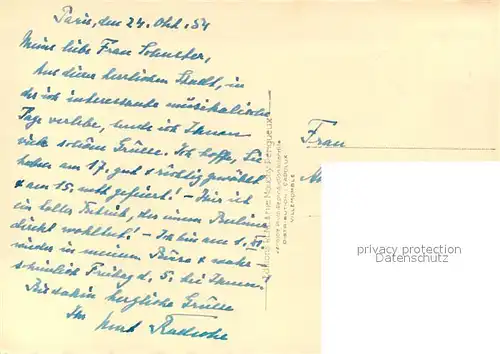 Paris, den 24. Okt. 54
Meine liebe Frau Schuster,
Aus dieser herrlichen Stadt, in
der ich interessante musikalische
Tage verlebe, sende ich Ihnen
viele schöne Grüße. Ich hoffe, Sie
haben am 17. gut & richtig gewählt
& am 15. nett gefeiert! - Hier ist
ein toller Betrieb, der einem Berliner
direkt wohltut! - Ich bin am 1. XI.
wieder in meinem Büro & wahr-
scheinlich Freitag d. 5. bei Ihnen!
Bis dahin herzliche Grüße
Ihr Kurt
Frau
privacy protection
www.ansichtskartenhandel.com